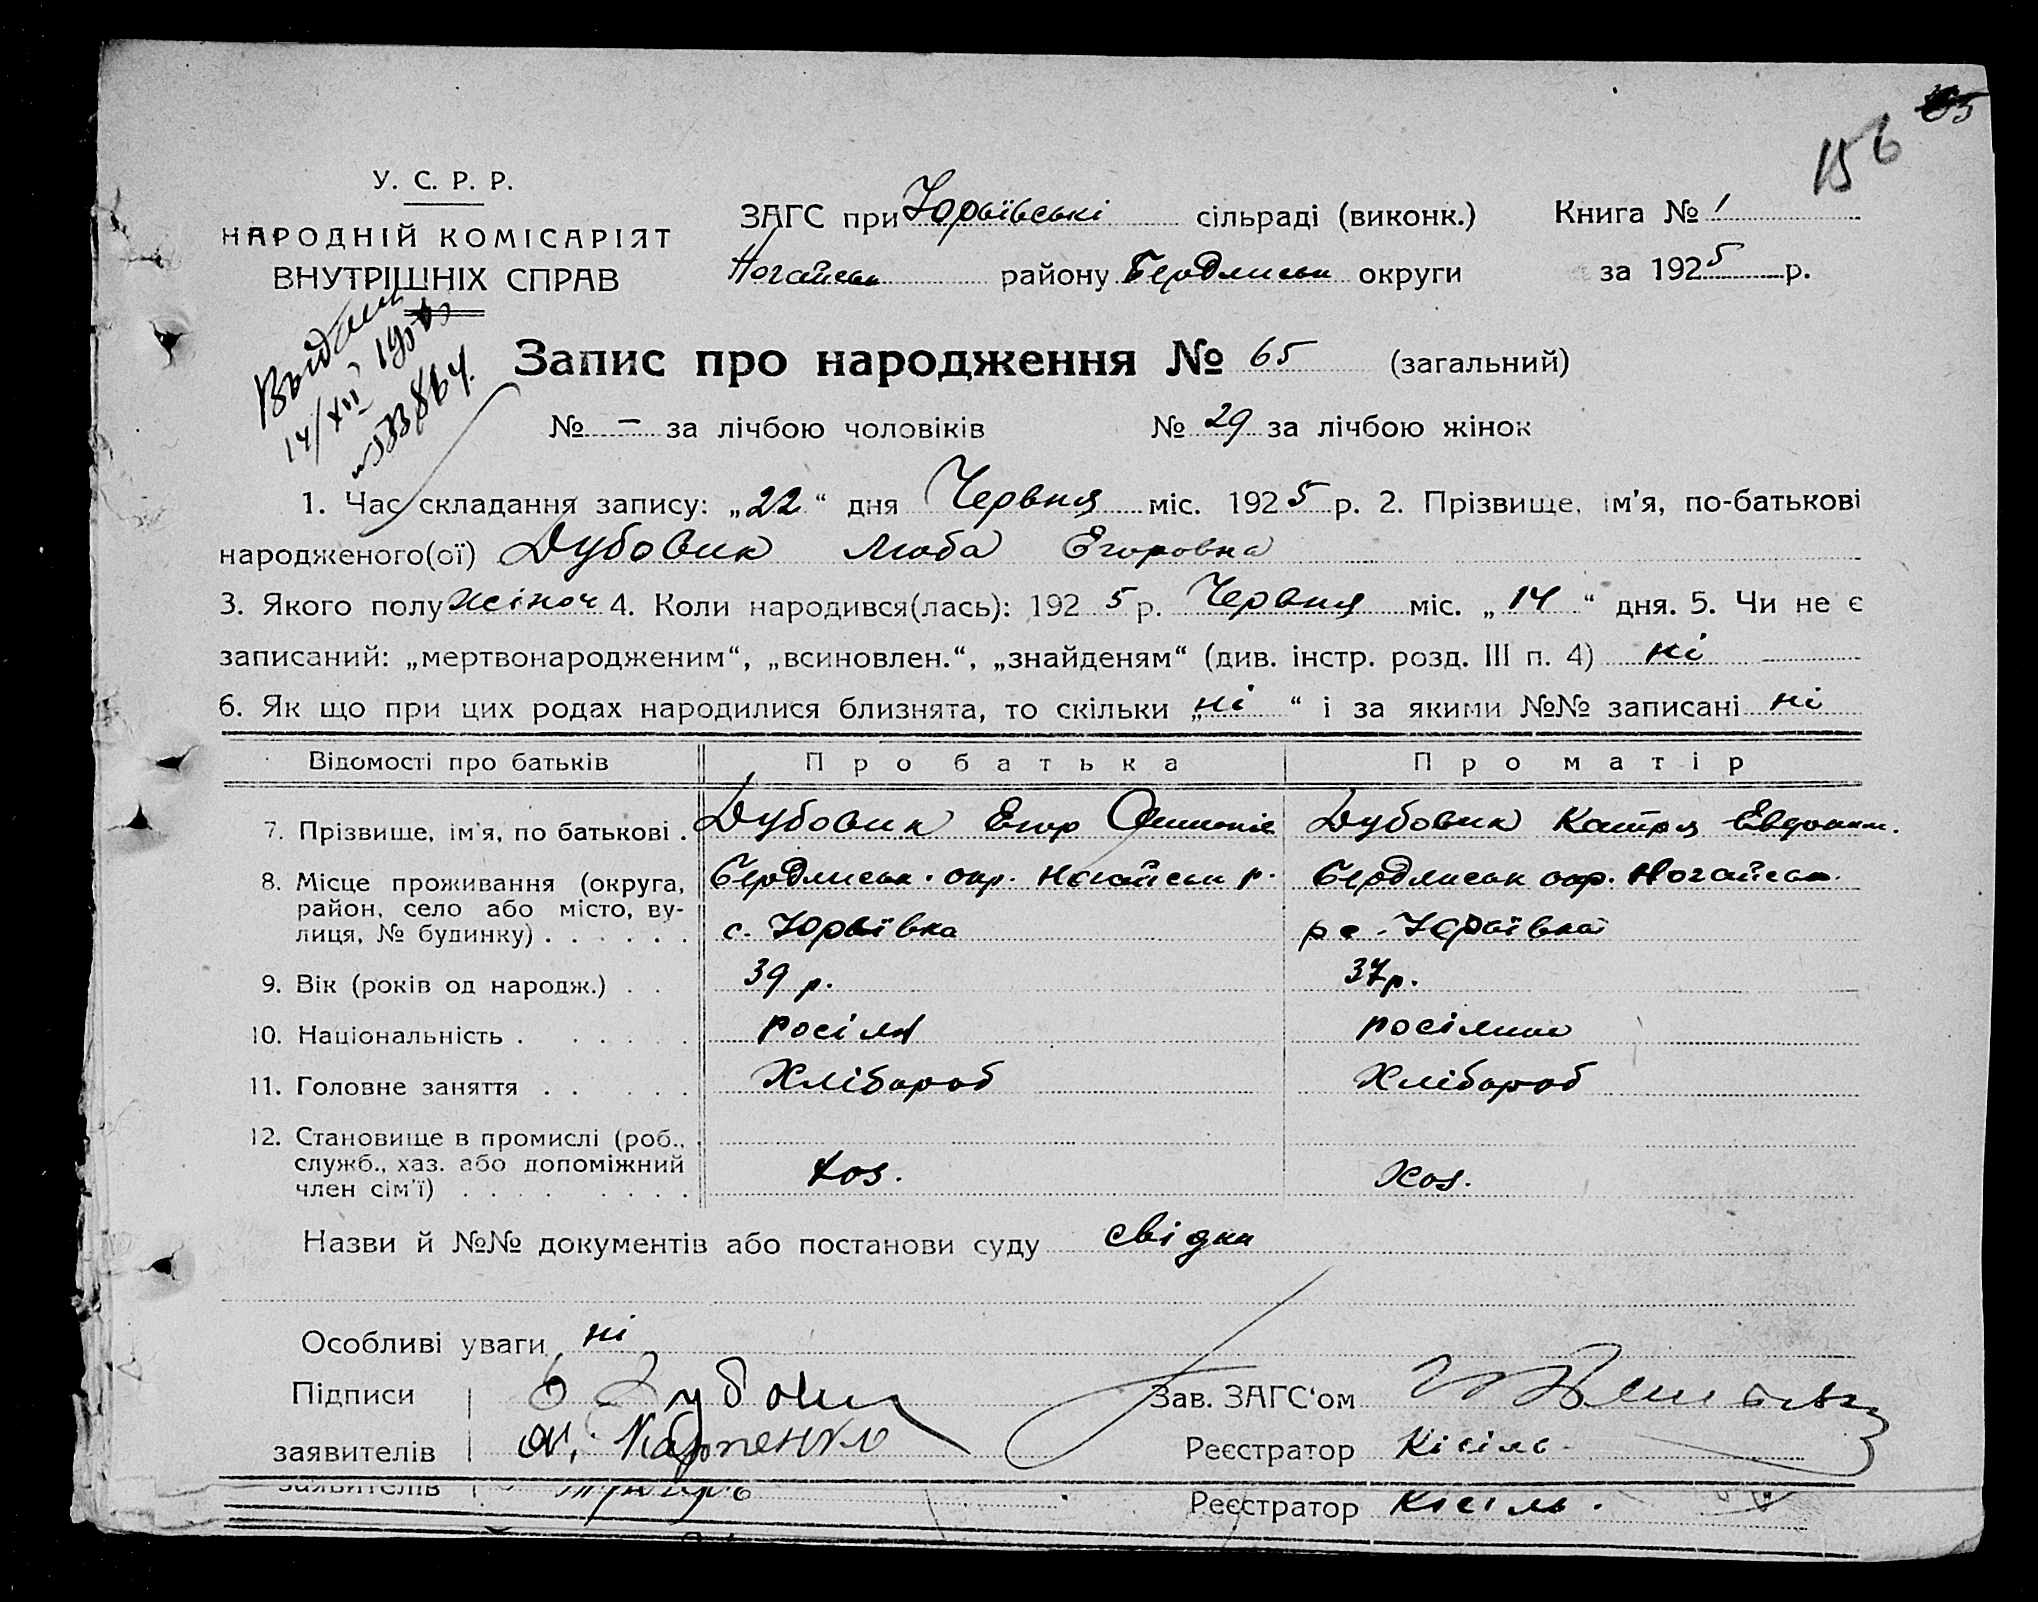 155
156
У. С. Р. Р.
НАРОДНІЙ КОМІСАРІЯТ
ВНУТРІШНІХ СПРАВ
ЗАГС при Юрьївські сільраді (виконк.) Книга № 1
Ногайськ району Бердянськ округи за 1925 р.
Выдан
14/XII
Запис про народження № 65 (загальний)
№ – за лічбою чоловіків № 29 за лічбою жінок
1. Час складання запису: „22“ дня Червня міс. 1925 р. 2. Прізвище, ім'я, по-батькові
народженого(ої) Дубовик Люба Егоровна
3. Якого полу жіноч 4. Коли народився(лась): 1925 р. Червня міс. „14“ дня. 5. Чи не є
записаний: „мертвонародженим“, „всиновлен.“, „знайденям“ (див. інстр. розд. III п. 4) ні
6. Як що при цих родах народилися близнята, то скільки „ні“ і за якими №№ записані ні
Відомості про батьків Про батька Про матір
7. Прізвище, ім'я, по батькові . Дубовик Егор Дубовик Катря Евдоким.
8. Місце проживання (округа, Бердянськ. окр. Ногайськ р. Бердянськ окр. Ногайськ.
район, село або місто, ву-
лиця, № будинку) . . . . . . с. Юрьївка р с. Юрьївка
9. Вік (років од народж.) . . 39 р. 37 р.
10. Національність . . . . . . росіян росіянка
11. Головне заняття . . . . . Хлібороб Хлібороб
12. Становище в промислі (роб.,
служб., хаз. або допоміжний
член сім'ї) . . . . . . . . хоз. Хоз.
Назви й №№ документів або постанови суду свідки
Особливі уваги ні
Підписи Зав. ЗАГС'ом
заявителів Карпенко Реєстратор Кісіль.
заявителів Реєстратор Кісіль.